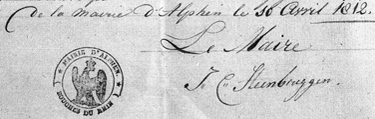 de la Mairie d'Alphen le 30 Avril 1812.
Le Maire
J. C. Steenbruggen.
MAIRIE D'ALPHEN
BOUCHES DU RHIN